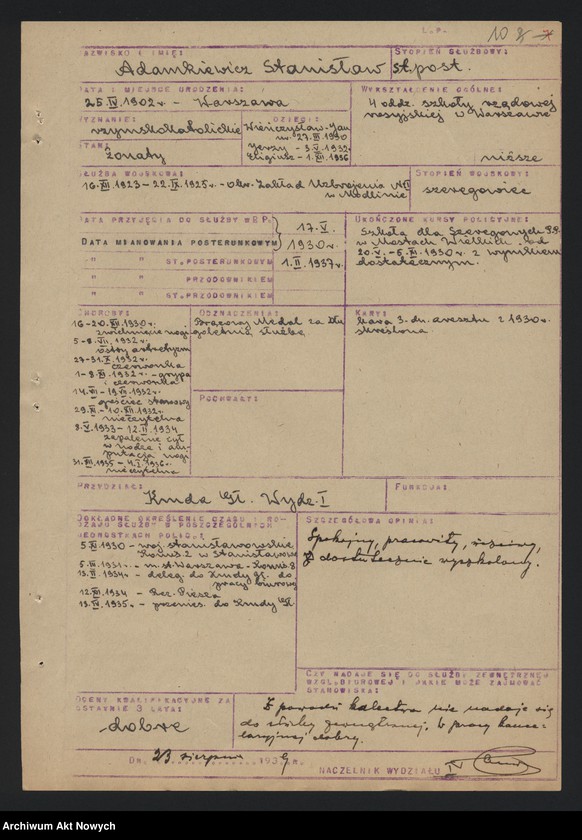 L.P.
10
NAZWISKO I IMIĘ:
Adamkiewicz Stanisław
STOPIEŃ SŁUŻBOWY:
st. post.
DATA I MIEJSCE URODZENIA:
25.IV.1902r. - Warszawa
WYZNANIE:
rzymskokatolickie
STAN:
żonaty
DZIECI:
Wieńczysław-Jan
ur. 27.III.1930
Jerzy - 3.V.1932r.
Eligiusz - 1.XII.1936
WYKSZTAŁCENIE OGÓLNE:
4 oddz. szkoły rządowej
rosyjskiej w Warszawie
niższe
SŁUŻBA WOJSKOWA:
16.XII.1923 - 22.IX.1925r. - Okr. Zakład Uzbrojenia Nr 1
w Modlinie
STOPIEŃ WOJSKOWY:
szeregowiec
DATA PRZYJĘCIA DO SŁUŻBY W P.P.
17.V.
DATA MIANOWANIA POSTERUNKOWYM
1930r.
" " ST.POSTERUNKOWYM
1.II.1937r.
" " PRZODOWNIKIEM
" " ST.PRZODOWNIKIEM
UKOŃCZONE KURSY POLICYJNE:
Szkoła dla Szeregowych P.P.
w Mostach Wielkich od
20.V. - 5.XI.1930r. z wynikiem
dostatecznym.
CHOROBY:
16-20.XII.1930r.
zwichnięcie nogi
5-8.VII.1932r.
ostry artretyzm
27-31.X.1932r.
czerwonka
1-8.XI.1932r. - grypa
i czerwonka
14.VI - 19.VII.1932r.
gościec stawowy
29.XI - 10.XII.1932r.
nieczytelna
8.V.1933 - 12.II.1934
zapalenie żył
w nodze i am-
putacja nogi
31.XII.1935 - 4.I.1936r.
nieczytelna
ODZNACZENIA:
Brązowy Medal za Dłu
goletnią służbę
POCHWAŁY:
KARY:
kara 3. dn. aresztu z 1930r.
skreślona.
PRZYDZIAŁ:
Kmda Gł. Wydz. I
FUNKCJA:
DOKŁADNE OKREŚLENIE CZASU I RO-
DZAJU SŁUŻBY W POSZCZEGÓLNYCH
JEDNOSTKACH POLIC.:
5.XI.1930 - woj. stanisławowskie
Komis. 2 w Stanisławowie
5.XI.1931r. - m.st. Warszawa - Komis. 8
13.II.1934r. - deleg. do Kmdy Gł. do
pracy biurowej
12.XII.1934 - Rez. Piesza
13.IV.1935r. - przenies. do Kmdy Gł.
SZCZEGÓŁOWA OPINIA:
Spokojny, pracowity,
dostatecznie wyszkolony.
CZY NADAJE SIĘ DO SŁUŻBY ZEWNĘTRZNEJ
WZGL.BIUROWEJ I JAKIE MOŻE ZAJMOWAĆ
STANOWISKA:
Z powodu kalectwa nie nadaje się
do służby zewnętrznej, w pracy kance-
laryjnej dobry.
OCENY KWALIFIKACYJNE ZA
OSTATNIE 3 LATA:
dobre
DN. 23 sierpnia 1939
NACZELNIK WYDZIAŁU I
Archiwum Akt Nowych